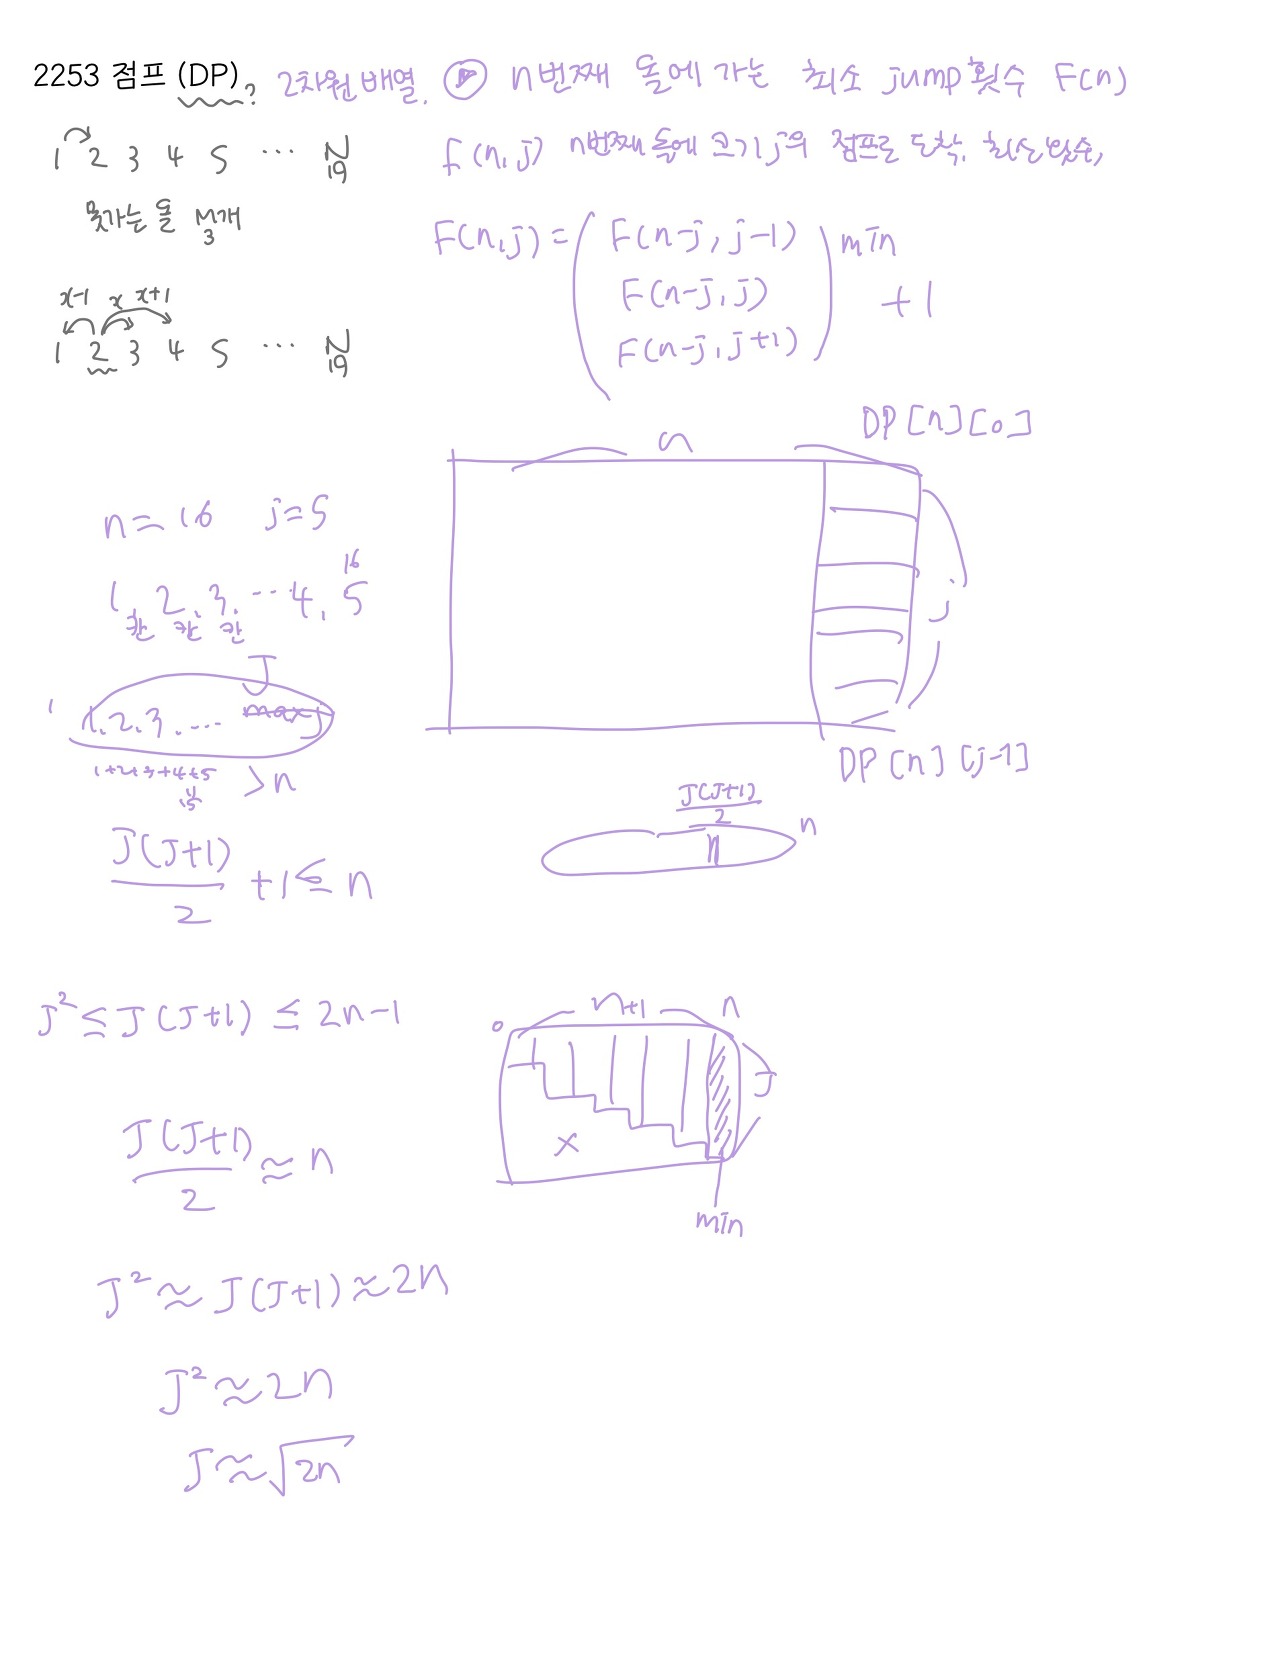 2253 점프 (DP)? 2차원 배열. n번째 돌에 가는 최소 jump 횟수 F(n)
1 2 3 4 5 ... N
19
F(n,j) n번째 돌에 크기 j의 점프로 도착. 최소 횟수,
못가는 돌 M개
3
F(n,j) = ( F(n-j, j-1)
F(n-j, j)
F(n-j, j+1) ) min + 1
x-1 x x+1
1 2 3 4 5 ... N
19
DP[n][0]
n
j
DP[n][j-1]
n = 16 j = 5
16
1, 2, 3, ... 4, 5
칸 칸 칸
J
1 1, 2, 3, .... max j
1+2+3+4+5
15
> n
J(J+1)/2 + 1 ≤ n
J(J+1)/2
n
n
J² ≤ J(J+1) ≤ 2n-1
0 n+1 n
J
x
min
J(J+1)/2 ≈ n
J² ≈ J(J+1) ≈ 2n
J² ≈ 2n
J ≈ √2n